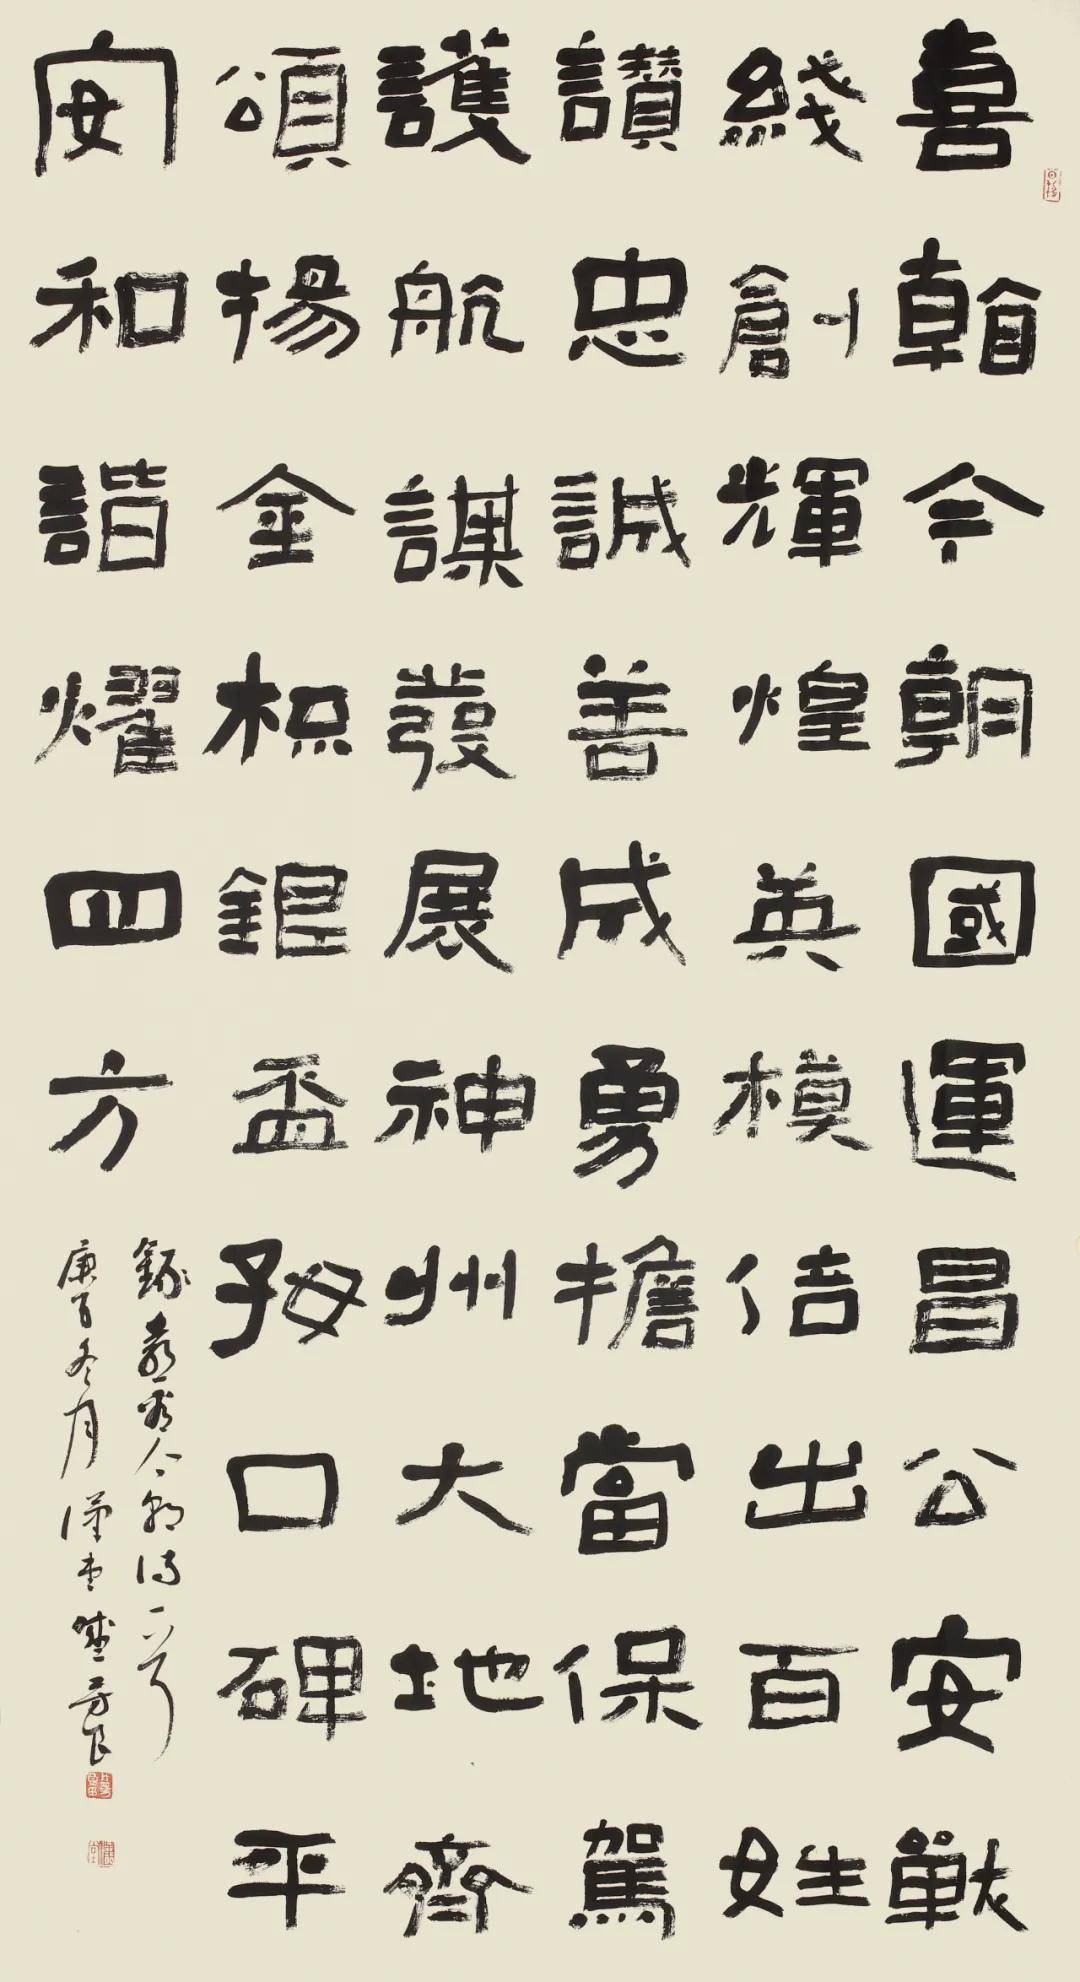 喜看今朝國運昌公安戰
綫創輝煌英模倍出百姓
讚忠誠善成勇擔當保駕
護航謀發展神州大地齊
頌揚金杯銀盃好口碑平
安和諧耀四方
錄喜看今朝詩一首
庚子冬月